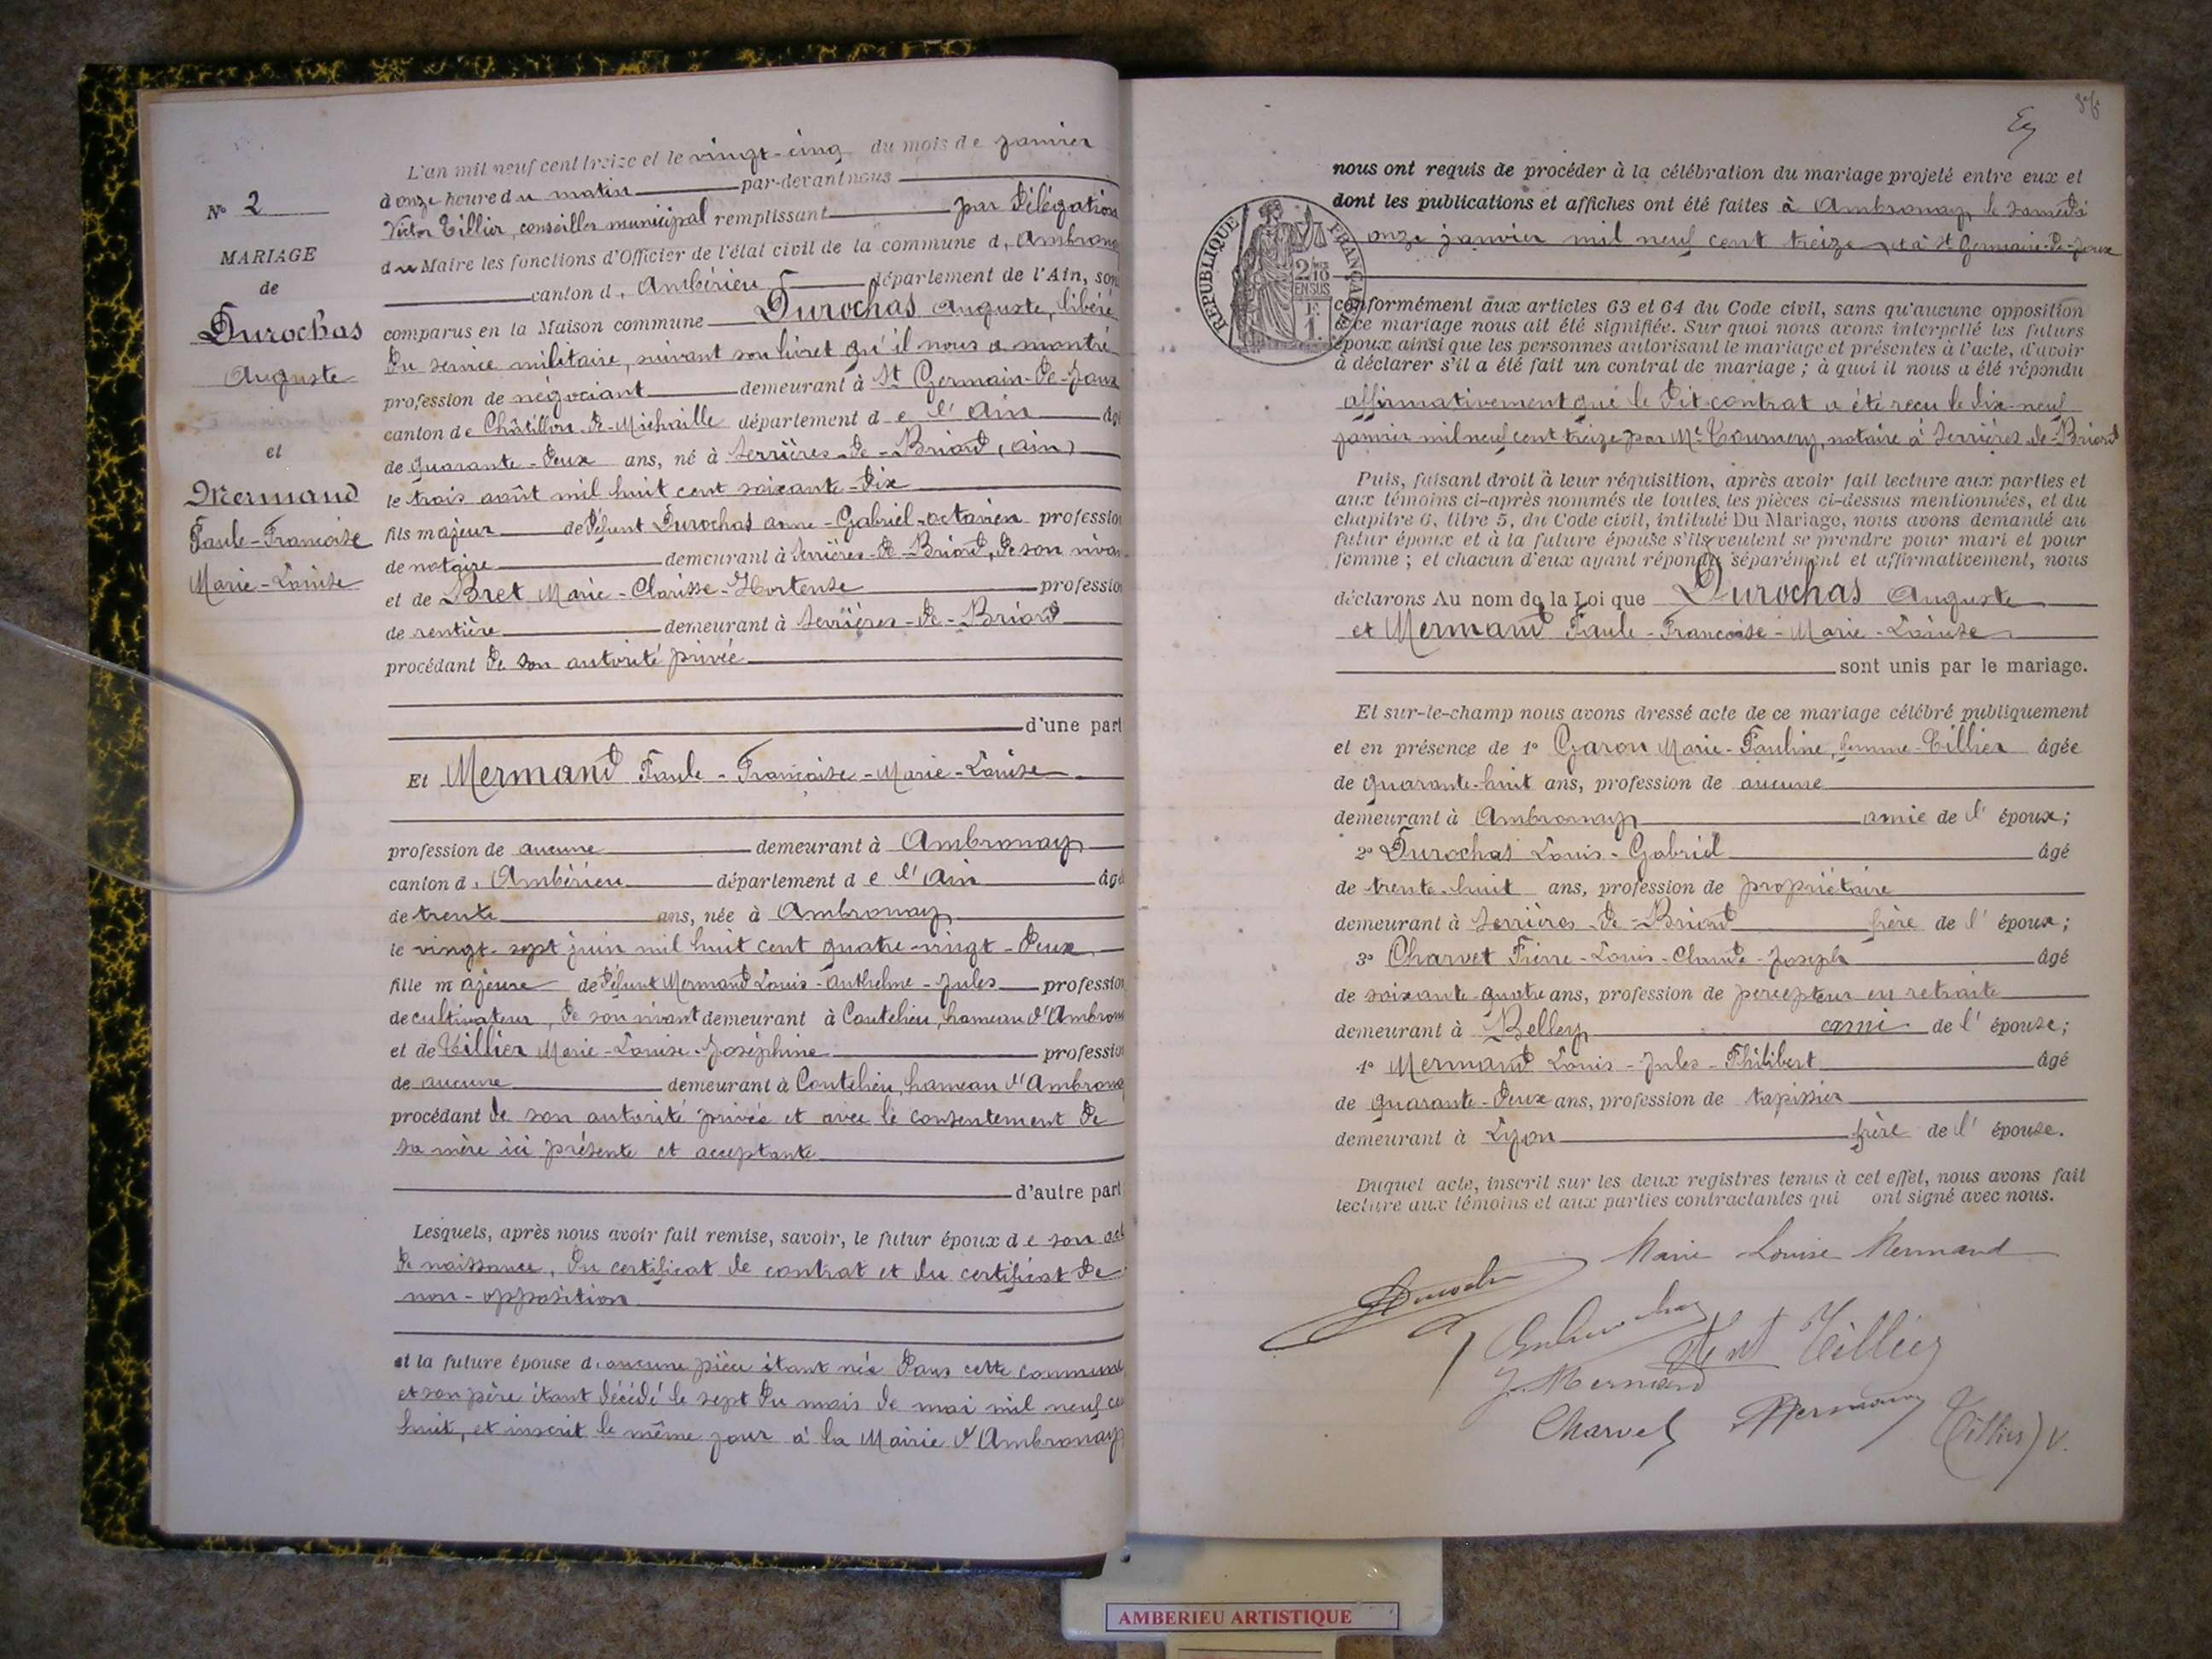 L'an mil neuf cent treize et le vingt-cinq du mois de janvier
à onze heure du matin par-devant nous
Victor Tillier, conseiller municipal remplissant par délégation
du Maire les fonctions d'Officier de l'état civil de la commune d, Ambronay
canton d, Ambérieu département de l'Ain, sont
comparus en la Maison commune Durochas Auguste, libéré
du service militaire, suivant son livret qu'il nous a montré
profession de négociant demeurant à St Germain-de-Joux
canton de Châtillon-de-Michaille département de l'Ain âgé
de quarante-deux ans, né à Serrières-de-Briord (Ain)
le trois août mil huit cent soixante-dix
fils majeur de défunt Durochas anne-Gabriel-octavien profession
de notaire demeurant à Serrières-de-Briord, de son vivant
et de Bret Marie-Clarisse-Hortense profession
de rentière demeurant à Serrières-de-Briord
procédant de son autorité privée
d'une part
Et Mermand Paule-Françoise-Marie-Louise
profession de aucune demeurant à Ambronay
canton d, Ambérieu département de l'Ain âgé
de trente ans, née à Ambronay
le vingt-sept juin mil huit cent quatre-vingt-deux
fille majeure de défunt Mermand Louis-Anthelme-Jules profession
de cultivateur, de son vivant demeurant à Coutelieu, hameau d'Ambronay
et de Tillier Marie-Louise-Joséphine profession
de aucune demeurant à Coutelieu, hameau d'Ambronay
procédant de son autorité privée et avec le consentement de
sa mère ici présente et acceptante
d'autre part
Lesquels, après nous avoir fait remise, savoir, le futur époux de son act
de naissance, du certificat de contrat et du certificat de
non-opposition
et la future épouse d, aucune pièce étant née dans cette commune
et son père étant décédé le sept du mois de mai mil neuf cent
huit, et inscrit le même jour à la Mairie d'Ambronay
N° 2
MARIAGE
de
Durochas
Auguste
et
Mermand
Paule-Françoise
Marie-Louise
nous ont requis de procéder à la célébration du mariage projeté entre eux et
dont les publications et affiches ont été faites à Ambronay, le samedi
onze janvier mil neuf cent treize et à St Germain-de-Joux
RÉPUBLIQUE FRANÇAISE
2/10 EN SUS
F. 1.
conformément aux articles 63 et 64 du Code civil, sans qu'aucune opposition
à ce mariage nous ait été signifiée. Sur quoi nous avons interpellé les futurs
époux ainsi que les personnes autorisant le mariage et présentes à l'acte, d'avoir
à déclarer s'il a été fait un contrat de mariage ; à quoi il nous a été répondu
affirmativement que le dit contrat a été reçu le dix-neuf
janvier mil neuf cent treize par Me Tournery, notaire à Serrières-de-Briord
Puis, faisant droit à leur réquisition, après avoir fait lecture aux parties et
aux témoins ci-après nommés de toutes les pièces ci-dessus mentionnées, et du
chapitre 6, titre 5, du Code civil, intitulé Du Mariage, nous avons demandé au
futur époux et à la future épouse s'ils veulent se prendre pour mari et pour
femme ; et chacun d'eux ayant répondu séparément et affirmativement, nous
déclarons Au nom de la Loi que Durochas Auguste
et Mermand Paule-Francoise-Marie-Louise
sont unis par le mariage.
Et sur-le-champ nous avons dressé acte de ce mariage célébré publiquement
et en présence de 1° Garon Marie-Pauline, femme Tillier âgée
de quarante-huit ans, profession de aucune
demeurant à Ambronay amie de l'époux;
2° Durochas Louis-Gabriel âgé
de trente-huit ans, profession de propriétaire
demeurant à Serrières-de-Briord frère de l'époux;
3° Charvet Pierre-Louis-Claude-Joseph âgé
de soixante-quatre ans, profession de percepteur en retraite
demeurant à Belley ami de l'épouse;
4° Mermand Louis-Jules-Philibert âgé
de quarante-deux ans, profession de tapissier
demeurant à Lyon frère de l'épouse.
Duquel acte, inscrit sur les deux registres tenus à cet effet, nous avons fait
lecture aux témoins et aux parties contractantes qui ont signé avec nous.
Marie Louise Mermand
Tillier
J. Mermand
Charvet Mermand Tillier V.
AMBERIEU ARTISTIQUE